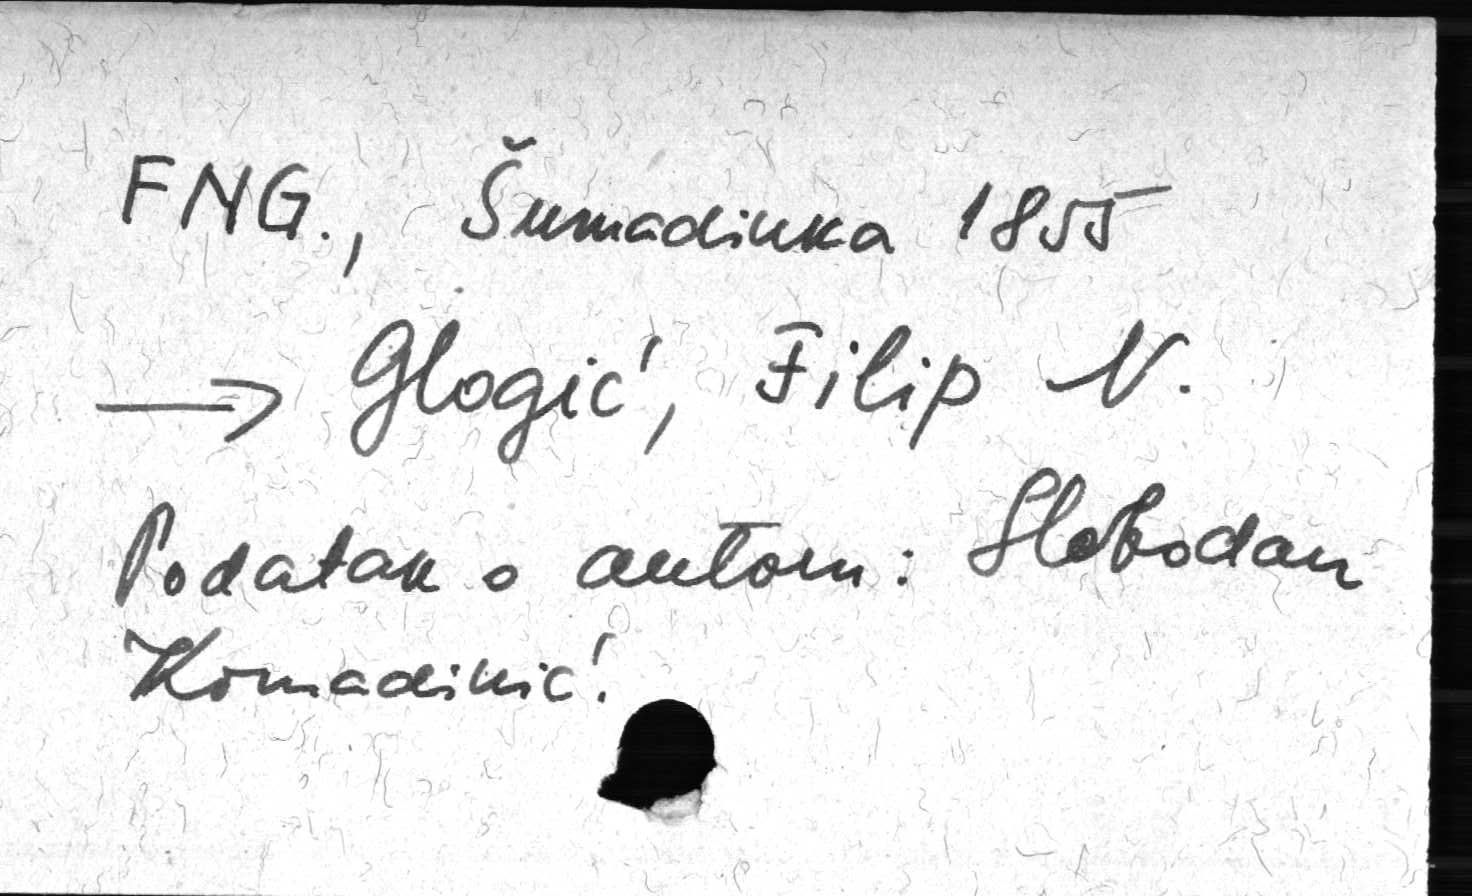 FNG., Šumadinka 1855
→ Glogić, Filip N.
Podatak o autoru: Slobodan
Komadinić.